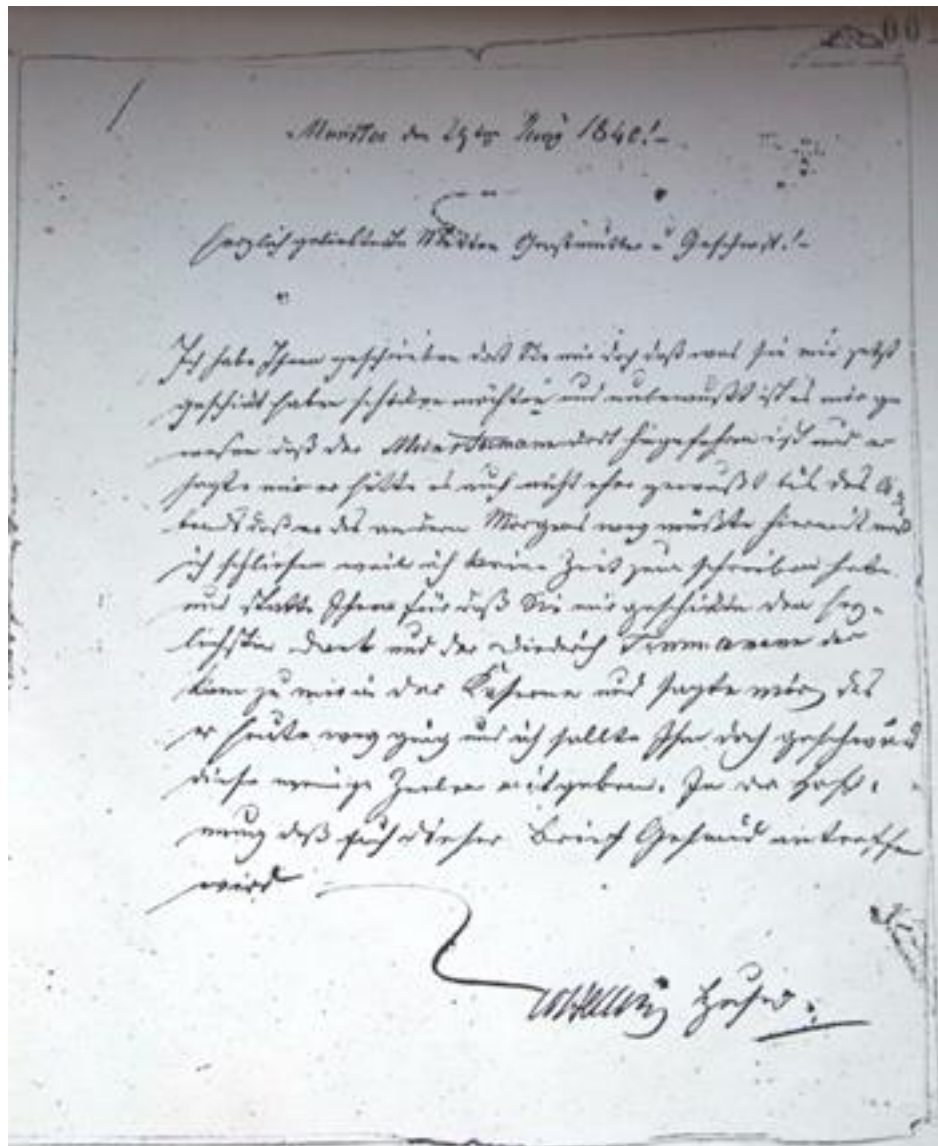 Münster den 29ten 1840!-
Herzlich geliebteste Mutter Großmutter u Geschwist.!-
Ich habe Ihnen geschrieben daß Sie mir doch daß was sie mir jetzt
geschickt haben schicken möchten und unbewußt ist es mir ge
wesen daß der dort hingefahren ist und er
sagte mir er hätte es auch nicht eher gewußt bis des A
bends daß er des andern Morgens weg müßte hiermit muß
ich schließen weil ich keine Zeit zum schreiben habe
und statte Ihnen für daß Sie mir geschickt den herz-
lichsten Dank und der Diedrich Timmermann der
kam zu mir in der Kaserne und sagte mir des
er heute weg ging und ich sollte Ihm doch geschwind
diese wenige Zeilen mitgeben. In der Hoff-
nung daß Euch dieser Brief Gesund antreffen
wird